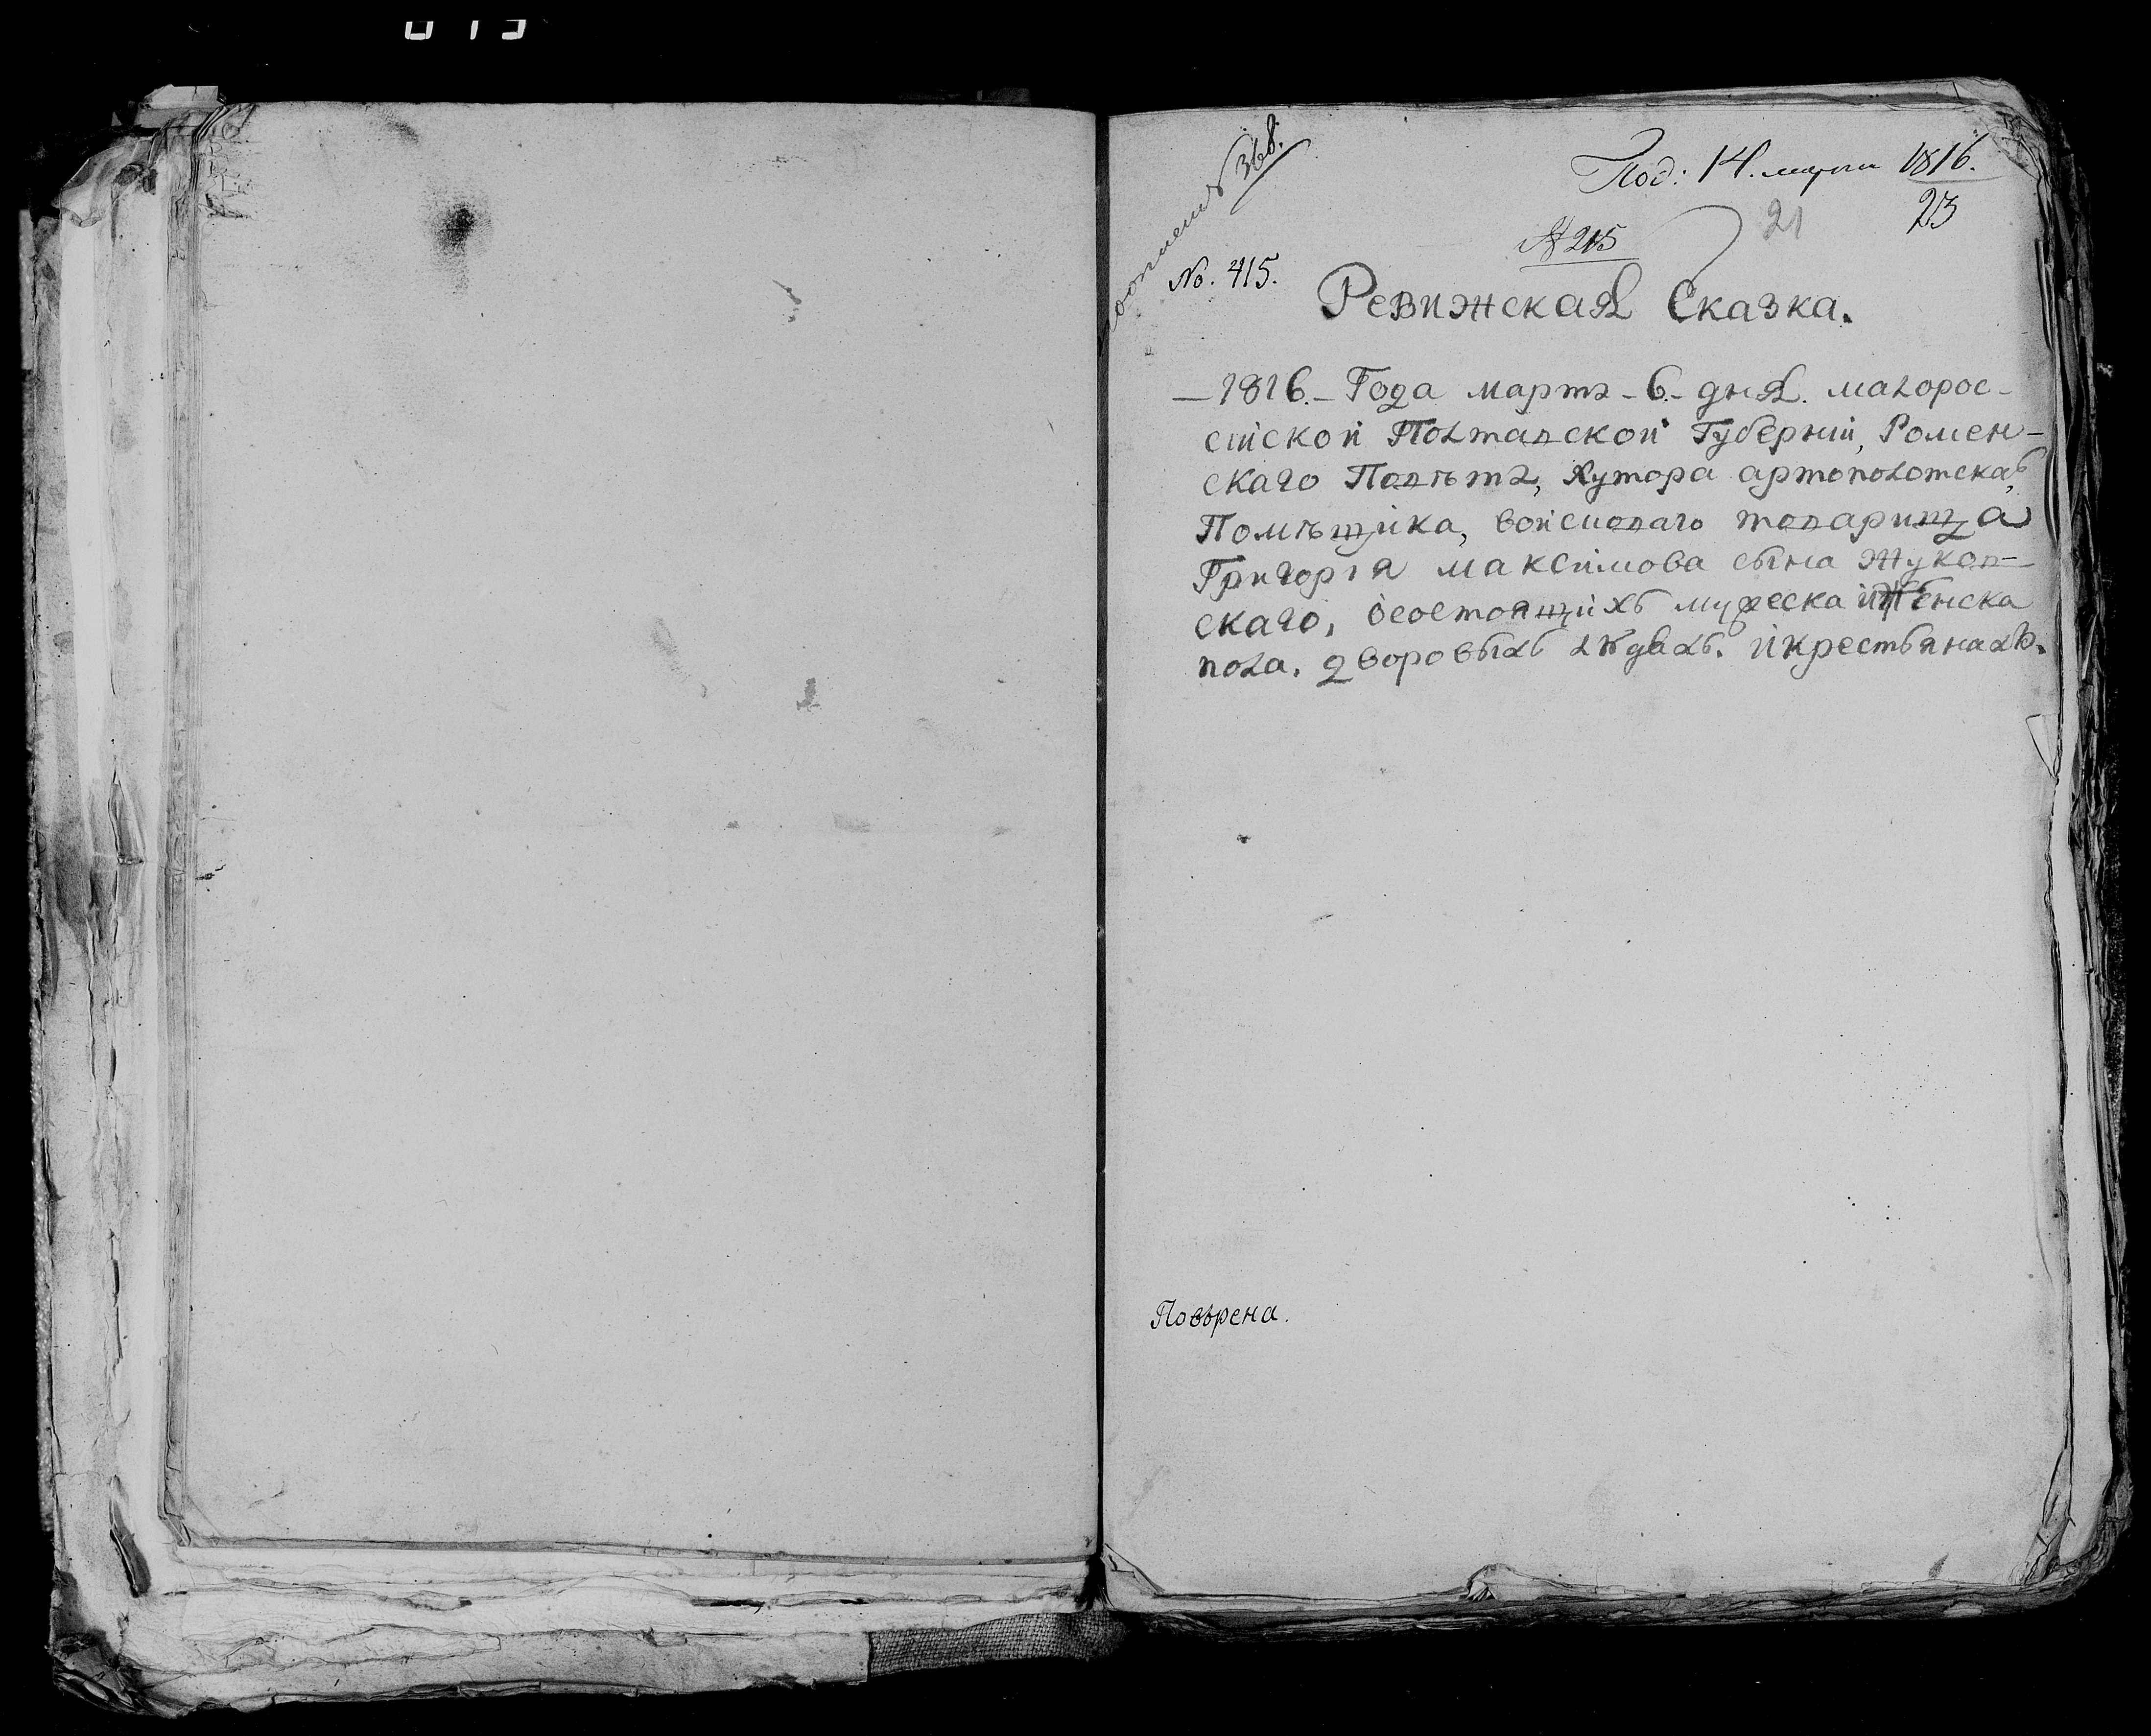 № 368.
Под: 14. марта 1816.
23
21
№ 215
No. 415.
Ревижская Сказка.
1816.- Года марта - 6.- дня. малорос-
сійской Полтавской Губерніи, Ромен-
скаго Повѣта, Хутора артополотска,
Помѣщика, войсковаго товарища
Григорія максимова сына Жуков-
скаго, осостоящихъ мужеска иженска
пола. дворовыхъ людяхъ. икрестьянахъ.
Повѣрена.